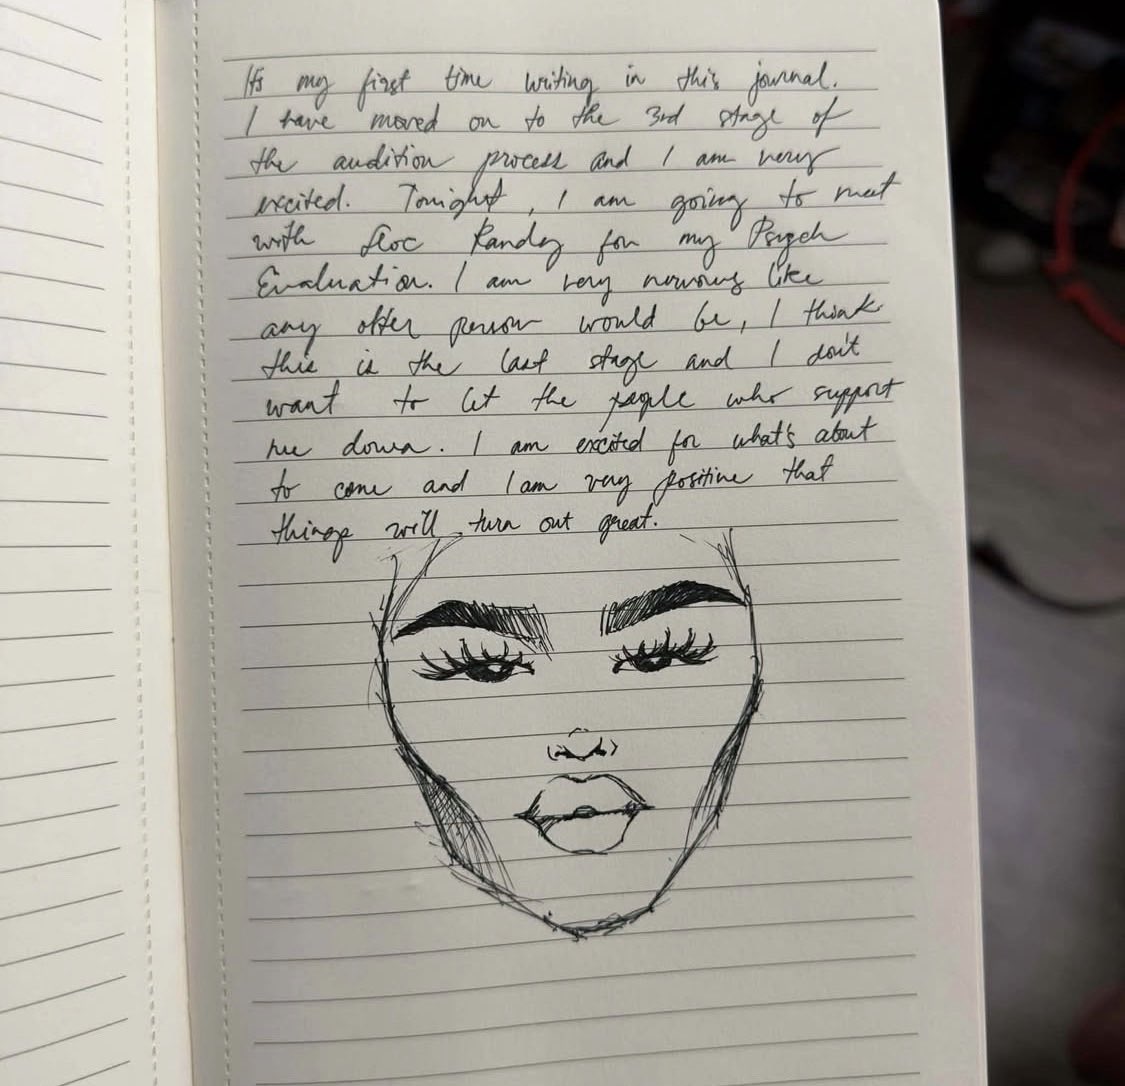 Its my first time writing in this journal.
I have moved on to the 3rd stage of
the audition process and I am very
excited. Tonight, I am going to meet
with Doc Randy for my Psych
Evaluation. I am very nervous like
any other person would be, I think
this is the last stage and I don't
want to let the people who support
me down. I am excited for what's about
to come and I am very positive that
things will turn out great.